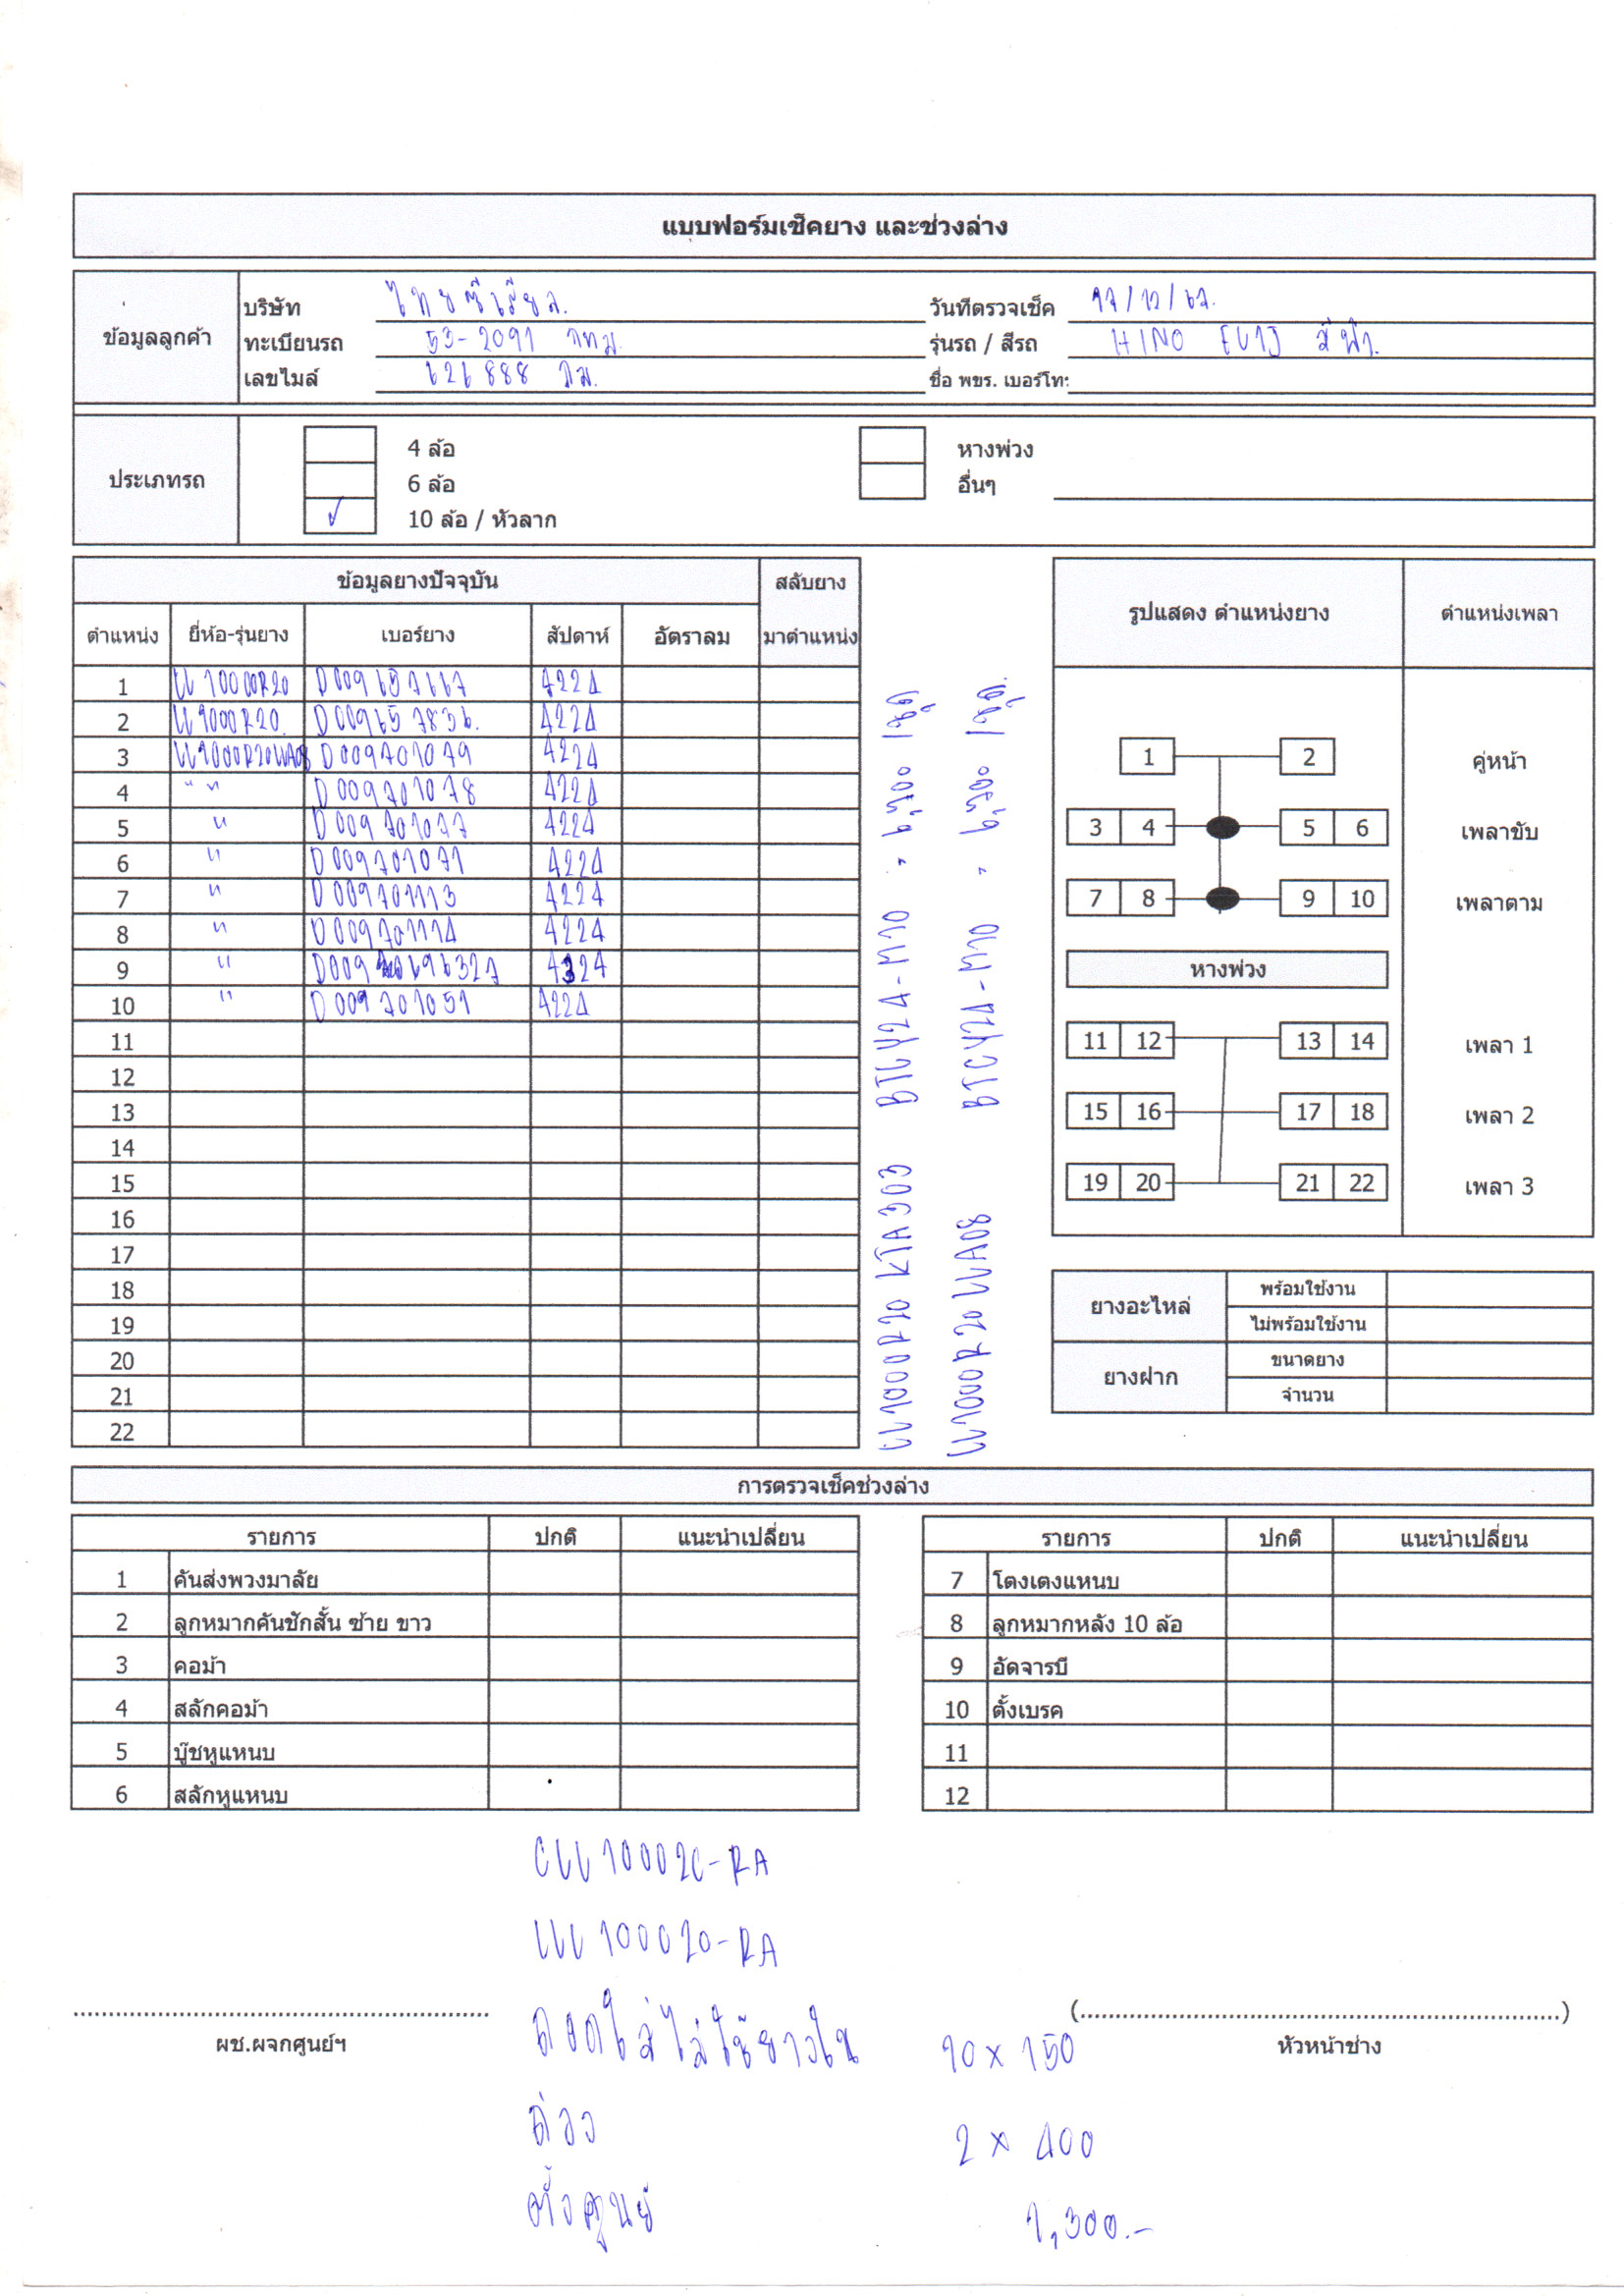 แบบฟอร์มเช็คยาง และช่วงล่าง
ข้อมูลลูกค้า
บริษัท ไทยซีเรียล
วันที่ตรวจเช็ค 17/12/67.
ทะเบียนรถ 53-2091 กทม.
รุ่นรถ / สีรถ HINO สีฟ้า
เลขไมล์ 626888 กม.
ชื่อ พขร. เบอร์โท:
ประเภทรถ
4 ล้อ
หางพ่วง
6 ล้อ
อื่นๆ
✓ 10 ล้อ / หัวลาก
ข้อมูลยางปัจจุบัน สลับยาง
ตำแหน่ง ยี่ห้อ-รุ่นยาง เบอร์ยาง สัปดาห์ อัตราลม มาตำแหน่ง
1 D009657667 4224
2 D009657836. 4224
3 D009701079 4224
4 " " D009701078 4224
5 " D009701077 4224
6 " D009701071 4224
7 " D009701113 4224
8 " D009701114 4224
9 " 4324
10 " D009701051 4224
11
12
13
14
15
16
17
18
19
20
21
22
รูปแสดง ตำแหน่งยาง ตำแหน่งเพลา
1 2 คู่หน้า
3 4 5 6 เพลาขับ
7 8 9 10 เพลาตาม
หางพ่วง
11 12 13 14 เพลา 1
15 16 17 18 เพลา 2
19 20 21 22 เพลา 3
ยางอะไหล่ พร้อมใช้งาน
ไม่พร้อมใช้งาน
ยางฝาก ขนาดยาง
จำนวน
การตรวจเช็คช่วงล่าง
รายการ ปกติ แนะนำเปลี่ยน
1 คันส่งพวงมาลัย
2 ลูกหมากคันชักสั้น ซ้าย ขาว
3 คอม้า
4 สลักคอม้า
5 บู๊ชหูแหนบ
6 สลักหูแหนบ
รายการ ปกติ แนะนำเปลี่ยน
7 โตงเตงแหนบ
8 ลูกหมากหลัง 10 ล้อ
9 อัดจารบี
10 ตั้งเบรค
11
12
100020-RA
100020-RA
ถอดใส่ไล่ใช้ยางใน 10 x 150
ถ่วง 2 x 400
ตั้งศูนย์ 1,300.-
ผช.ผจกศูนย์ฯ
(......................)
หัวหน้าช่าง